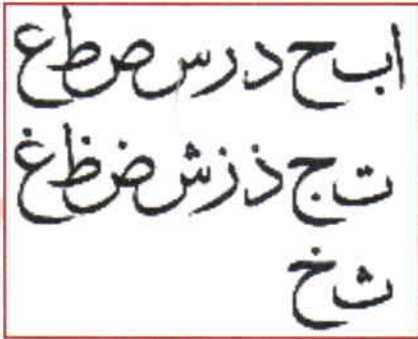 ا ب ح د ر س ص ط ع
ت ج ذ ز ش ض ظ غ
ث خ